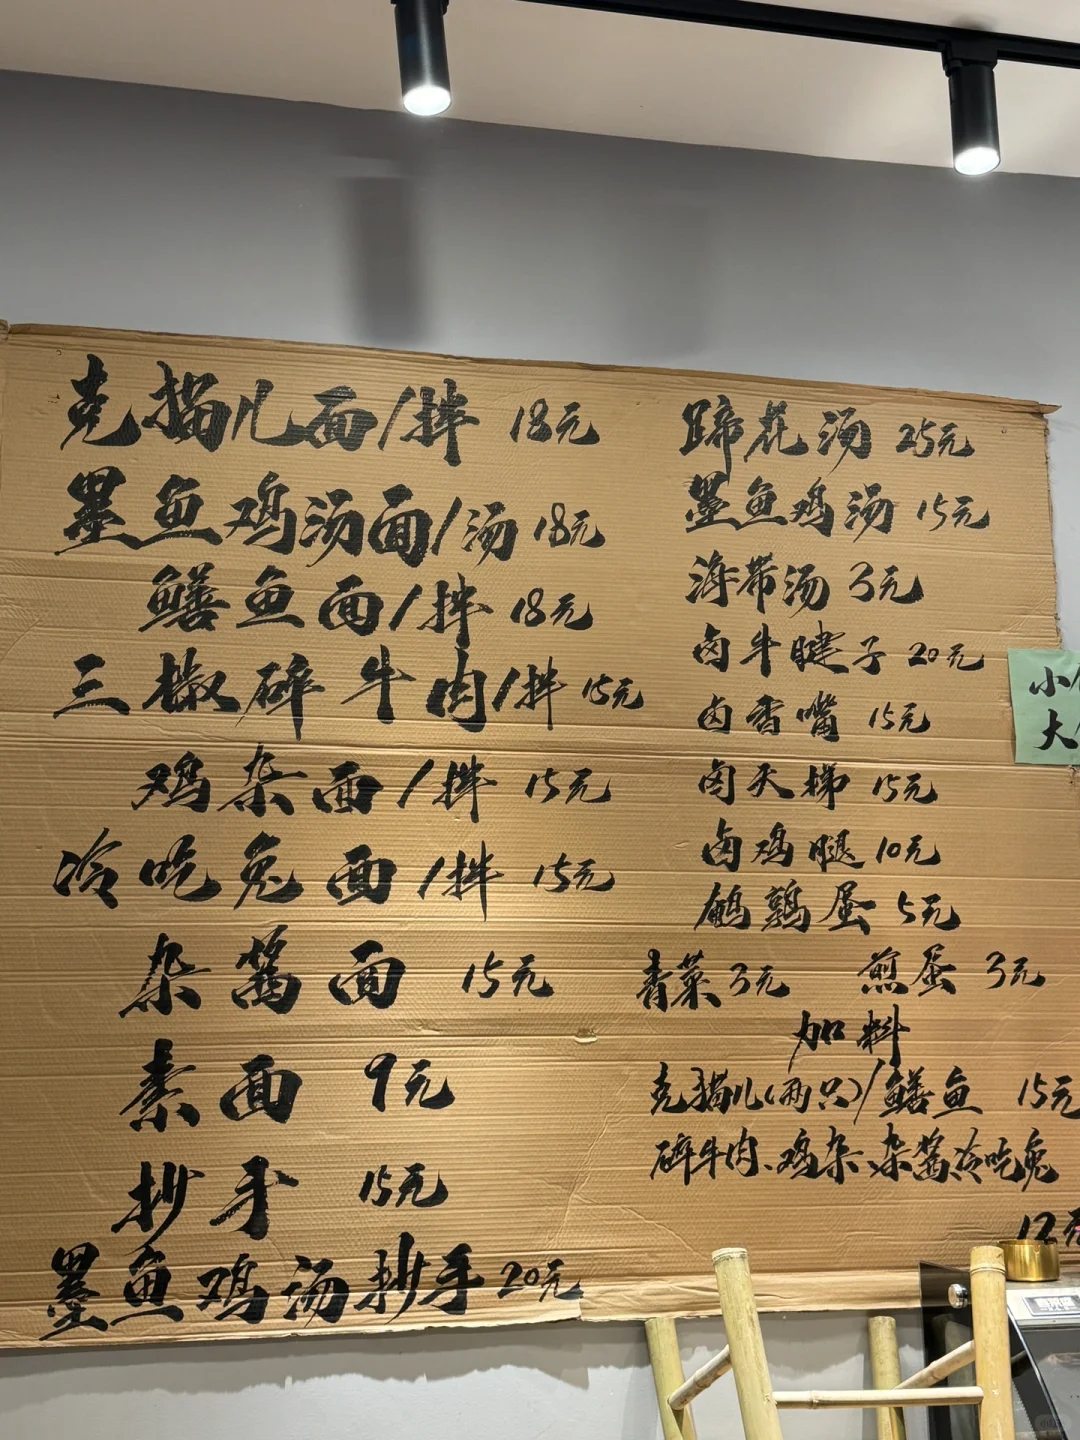 克猫儿面/拌 18元
墨鱼鸡汤面/汤 18元
鳝鱼面/拌 18元
三椒碎牛肉/拌 15元
鸡杂面/拌 15元
冷吃兔面/拌 15元
杂酱面 15元
素面 9元
抄手 15元
墨鱼鸡汤抄手 20元
蹄花汤 25元
墨鱼鸡汤 15元
海带汤 3元
卤牛腱子 20元
卤香嘴 15元
卤天梯 15元
卤鸡腿 10元
鹌鹑蛋 5元
青菜 3元 煎蛋 3元
加料
克猫儿(两只)/鳝鱼 15元
碎牛肉、鸡杂、杂酱冷吃兔
12元
小
大